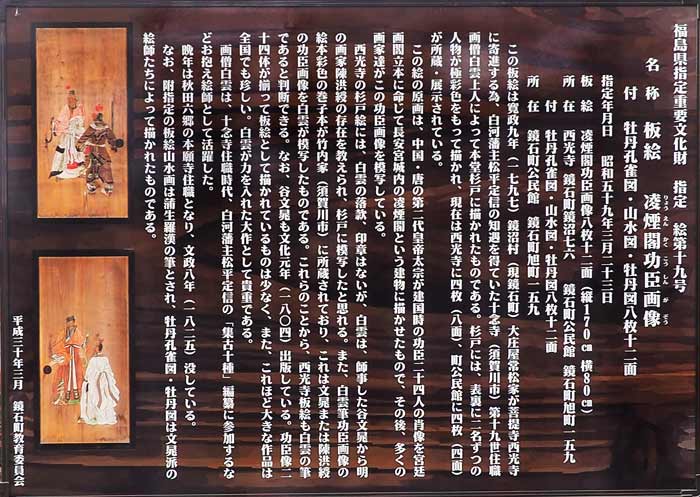 福島県指定重要文化財　指定　絵第十九号
名　称　板絵　凌煙閣功臣画像
りょうえんかくこうしんがぞう
付　牡丹孔雀図・山水図・牡丹図八枚十二面
指定年月日　昭和五十九年三月二十三日
板　絵　凌煙閣功臣画像八枚十二面（縦170㎝ 横80㎝）
所　在　西光寺　鏡石町鏡沼七六　鏡石町公民館　鏡石町旭町一五九
付　牡丹孔雀図・山水図・牡丹図八枚十二面
所　在　鏡石町公民館　鏡石町旭町一五九
この板絵は寛政九年（一七九七）鏡沼村（現鏡石町）大庄屋常松家が菩提寺西光寺
に寄進する為、白河藩主松平定信の知遇を得ていた十念寺（須賀川市）第十九世住職
画僧白雲上人によって本堂杉戸に描かれたものである。杉戸には、表裏に二名ずつの
人物が極彩色をもって描かれ、現在は西光寺に四枚（八面）、町公民館に四枚（四面）
が所蔵・展示されている。
この絵の原画は、中国・唐の第二代皇帝太宗が建国時の功臣二十四人の肖像を宮廷
画閻立本に命じて長安宮城内の凌煙閣という建物に描かせたもので、その後、多くの
画家達がこの功臣画像を模写している。
西光寺の杉戸絵には、白雲の落款、印章はないが、白雲は、師事した谷文晁から明
の画家陳洪綬の存在を教えられ、杉戸に模写したと思れる。また、白雲筆功臣画像の
絵本彩色の巻子本が竹内家（須賀川市）に所蔵されており、これは文晁または陳洪綬
の功臣画像を白雲が模写したものである。これらのことから、西光寺板絵も白雲の筆
であると判断できる。なお、谷文晁も文化元年（一八〇四）出版している。功臣像二
十四体が揃って板絵として描かれているものは少なく、また、これほど大きな作品は
全国でも珍しい。白雲が力を入れた大作として貴重である。
画僧白雲は、十念寺住職時代、白河藩主松平定信の「集古十種」編纂に参加するな
どお抱え絵師として活躍した。
晩年は秋田六郷の本願寺住職となり、文政八年（一八二五）没している。
なお、附指定の板絵山水画は蒲生羅漢の筆とされ、牡丹孔雀図・牡丹図は文晁派の
絵師たちによって描かれたものである。
平成三十年三月　鏡石町教育委員会